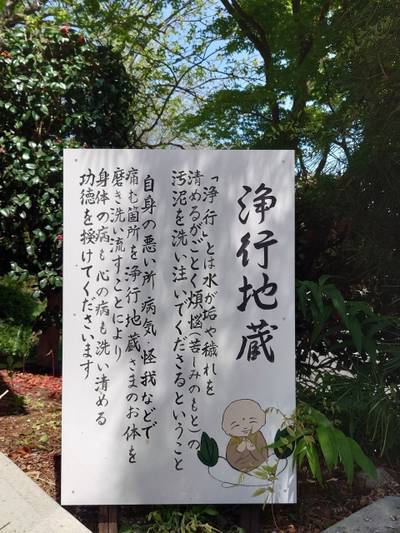 浄行地蔵
「浄行」とは水が垢や穢れを
清めるがごとく煩悩（苦しみのもと）の
汚泥を洗い注いでくださるということ
自身の悪い所、病気・怪我などで
痛む箇所を浄行地蔵さまのお体を
磨き洗い流すことにより
身体の病も心の病も洗い清める
功徳を授けてくださいます